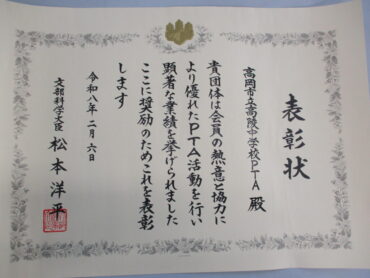 表彰状
高岡市立高陵中学校PTA 殿
貴団体は会員の熱意と協力に
より優れたPTA活動を行い
顕著な業績を挙げられました
ここに奨励のためこれを表彰
します
令和八年二月六日
文部科学大臣 松本洋平